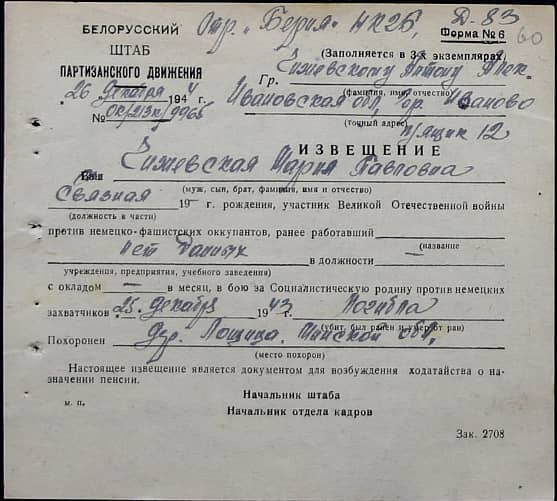 Отр. „Берия" НК26, Д-83
60
БЕЛОРУССКИЙ
ШТАБ
ПАРТИЗАНСКОГО ДВИЖЕНИЯ
„26" декабря 1944 г.
№ ОК/213к/9965
Форма № 6
(Заполняется в 3-х экземплярах)
Гр. Чижевскому Антону
(фамилия, имя, отчество)
Ивановская обл, гор. Иваново
(точный адрес)
п/ящик 12
ИЗВЕЩЕНИЕ
Чижевская Мария Павловна
(муж, сын, брат, фамилия, имя и отчество)
Связная 19— г. рождения, участник Великой Отечественной войны
(должность в части)
против немецко-фашистских оккупантов, ранее работавший
нет данных
(название
учреждения, предприятия, учебного заведения)
— в должности —
с окладом — в месяц, в бою за Социалистическую родину против немецких
захватчиков „26" декабря 1943 г. погибла
(убит, был ранен и умер от ран)
Похоронен дер. Лощица, Минской обл,
(место похорон)
Настоящее извещение является документом для возбуждения ходатайства о на-
значении пенсии.
м. п.
Начальник штаба
Начальник отдела кадров
Зак. 2708